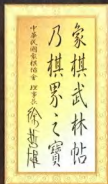 象棋武林帖
乃棋界之寶
中華民國象棋協會 理事長
徐
雄